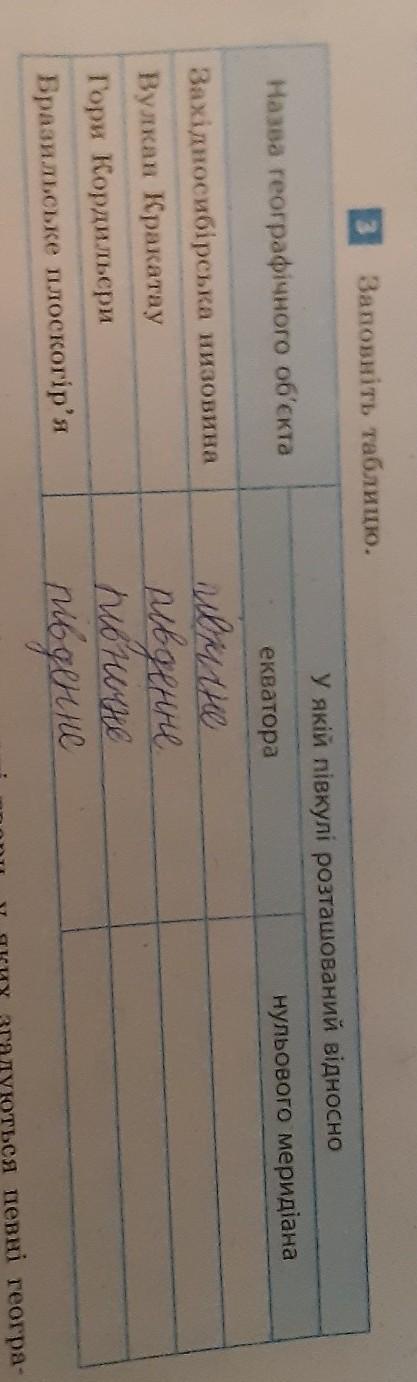 3 Заповніть таблицю.
Назва географічного об'єкта
У якій півкулі розташований відносно
екватора
нульового меридіана
Західносибірська низовина
північне
Вулкан Кракатау
південне
Гори Кордильєри
північне
Бразильське плоскогір'я
південне
твори, у яких згадуються певні геогра-